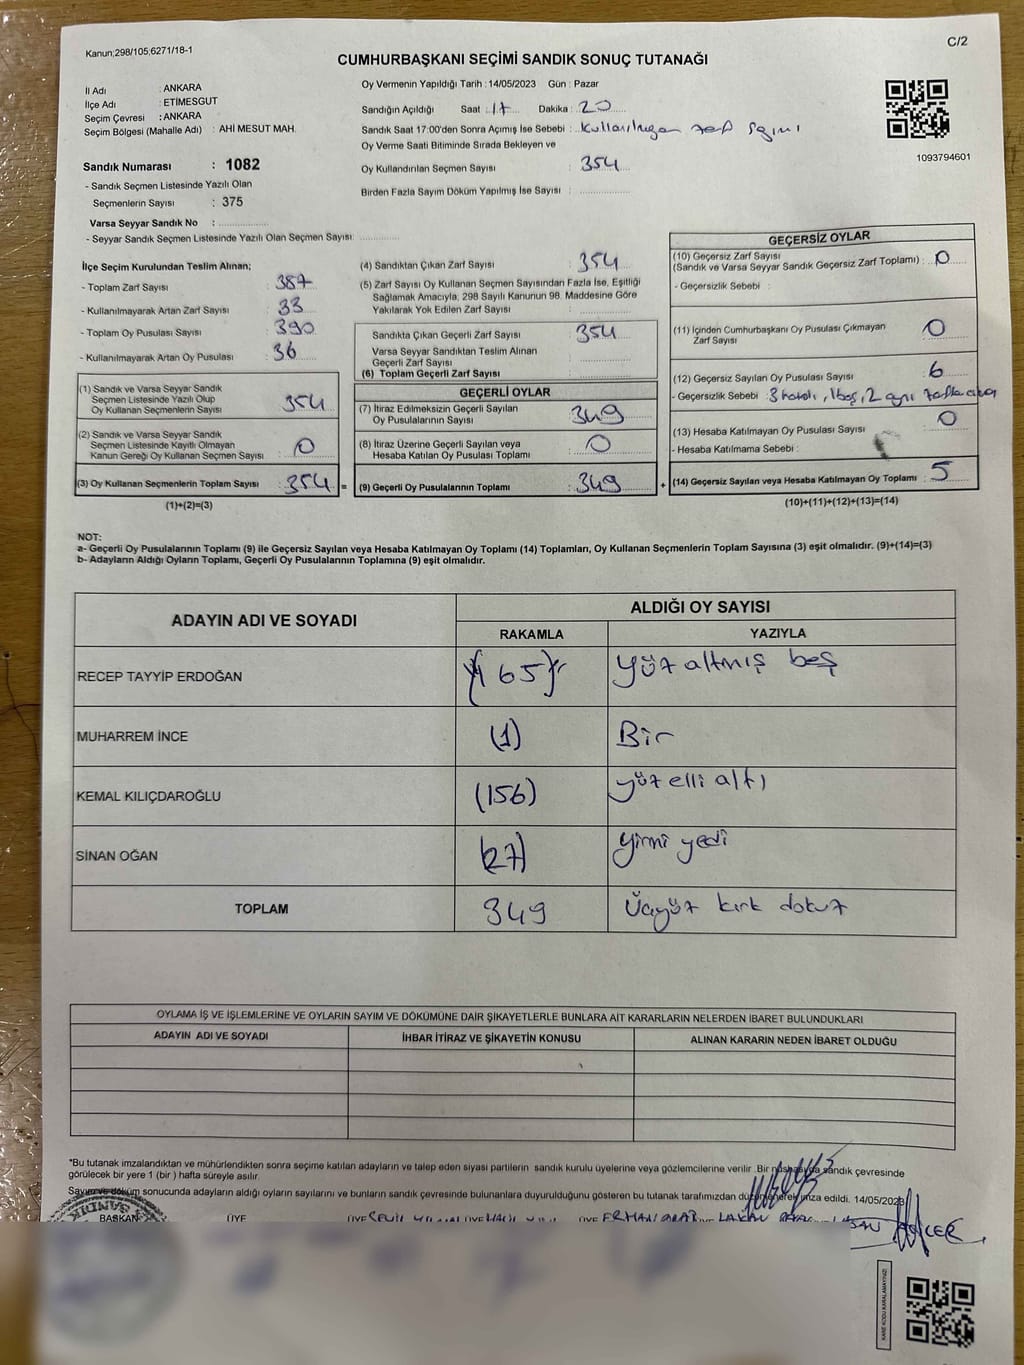 Kanun;298/105;6271/18-1
C/2
CUMHURBAŞKANI SEÇİMİ SANDIK SONUÇ TUTANAĞI
İl Adı : ANKARA
İlçe Adı : ETİMESGUT
Seçim Çevresi : ANKARA
Seçim Bölgesi (Mahalle Adı) : AHİ MESUT MAH.
Sandık Numarası : 1082
- Sandık Seçmen Listesinde Yazılı Olan
Seçmenlerin Sayısı : 375
Varsa Seyyar Sandık No :
- Seyyar Sandık Seçmen Listesinde Yazılı Olan Seçmen Sayısı:
Oy Vermenin Yapıldığı Tarih : 14/05/2023 Gün : Pazar
Sandığın Açıldığı Saat : 17 Dakika : 20
Sandık Saat 17:00'den Sonra Açımış İse Sebebi : Kullanılmayan zarf sayımı
Oy Verme Saati Bitiminde Sırada Bekleyen ve
Oy Kullandırılan Seçmen Sayısı : 354
Birden Fazla Sayım Döküm Yapılmış İse Sayısı :
1093794601
İlçe Seçim Kurulundan Teslim Alınan;
- Toplam Zarf Sayısı : 387
- Kullanılmayarak Artan Zarf Sayısı : 33
- Toplam Oy Pusulası Sayısı : 390
- Kullanılmayarak Artan Oy Pusulası : 36
(1) Sandık ve Varsa Seyyar Sandık
Seçmen Listesinde Yazılı Olup
Oy Kullanan Seçmenlerin Sayısı : 354
(2) Sandık ve Varsa Seyyar Sandık
Seçmen Listesinde Kayıtlı Olmayan
Kanun Gereği Oy Kullanan Seçmen Sayısı : 0
(3) Oy Kullanan Seçmenlerin Toplam Sayısı : 354 =
(1)+(2)=(3)
(4) Sandıktan Çıkan Zarf Sayısı : 354
(5) Zarf Sayısı Oy Kullanan Seçmen Sayısından Fazla İse, Eşitliği
Sağlamak Amacıyla, 298 Sayılı Kanunun 98. Maddesine Göre
Yakılarak Yok Edilen Zarf Sayısı :
Sandıkta Çıkan Geçerli Zarf Sayısı : 354
Varsa Seyyar Sandıktan Teslim Alınan
Geçerli Zarf Sayısı :
(6) Toplam Geçerli Zarf Sayısı :
GEÇERLİ OYLAR
(7) İtiraz Edilmeksizin Geçerli Sayılan
Oy Pusulasının Sayısı : 349
(8) İtiraz Üzerine Geçerli Sayılan veya
Hesaba Katılan Oy Pusulası Toplamı : 0
(9) Geçerli Oy Pusulalarının Toplamı : 349 +
GEÇERSİZ OYLAR
(10) Geçersiz Zarf Sayısı
(Sandık ve Varsa Seyyar Sandık Geçersiz Zarf Toplamı) : 0
- Geçersizlik Sebebi :
(11) İçinden Cumhurbaşkanı Oy Pusulası Çıkmayan
Zarf Sayısı : 0
(12) Geçersiz Sayılan Oy Pusulası Sayısı : 6
- Geçersizlik Sebebi : 3 hatalı, 1 boş, 2 aynı
(13) Hesaba Katılmayan Oy Pusulası Sayısı : 0
- Hesaba Katılmama Sebebi :
(14) Geçersiz Sayılan veya Hesaba Katılmayan Oy Toplamı : 5
(10)+(11)+(12)+(13)=(14)
NOT:
a- Geçerli Oy Pusulalarının Toplamı (9) ile Geçersiz Sayılan veya Hesaba Katılmayan Oy Toplamı (14) Toplamları, Oy Kullanan Seçmenlerin Toplam Sayısına (3) eşit olmalıdır. (9)+(14)=(3)
b- Adayların Aldığı Oyların Toplamı, Geçerli Oy Pusulalarının Toplamına (9) eşit olmalıdır.
ADAYIN ADI VE SOYADI ALDIĞI OY SAYISI
RAKAMLA YAZIYLA
RECEP TAYYİP ERDOĞAN (165) yüz altmış beş
MUHARREM İNCE (1) Bir
KEMAL KILIÇDAROĞLU (156) yüz elli altı
SİNAN OĞAN (27) yirmi yedi
TOPLAM 349 Üçyüz kırk dokuz
OYLAMA İŞ VE İŞLEMLERİNE VE OYLARIN SAYIM VE DÖKÜMÜNE DAİR ŞİKAYETLERLE BUNLARA AİT KARARLARIN NELERDEN İBARET BULUNDUKLARI
ADAYIN ADI VE SOYADI İHBAR İTİRAZ VE ŞİKAYETİN KONUSU ALINAN KARARIN NEDEN İBARET OLDUĞU
*Bu tutanak imzalandıktan ve mühürlendikten sonra seçime katılan adayların ve talep eden siyasi partilerin sandık kurulu üyelerine veya gözlemcilerine verilir. Bir nüshası da sandık çevresinde
görülecek bir yere 1 (bir) hafta süreyle asılır.
Sayım ve döküm sonucunda adayların aldığı oyların sayılarını ve bunların sandık çevresinde bulunanlara duyurulduğunu gösteren bu tutanak tarafımızdan düzenlenerek imza edildi. 14/05/2023
BAŞKAN ÜYE